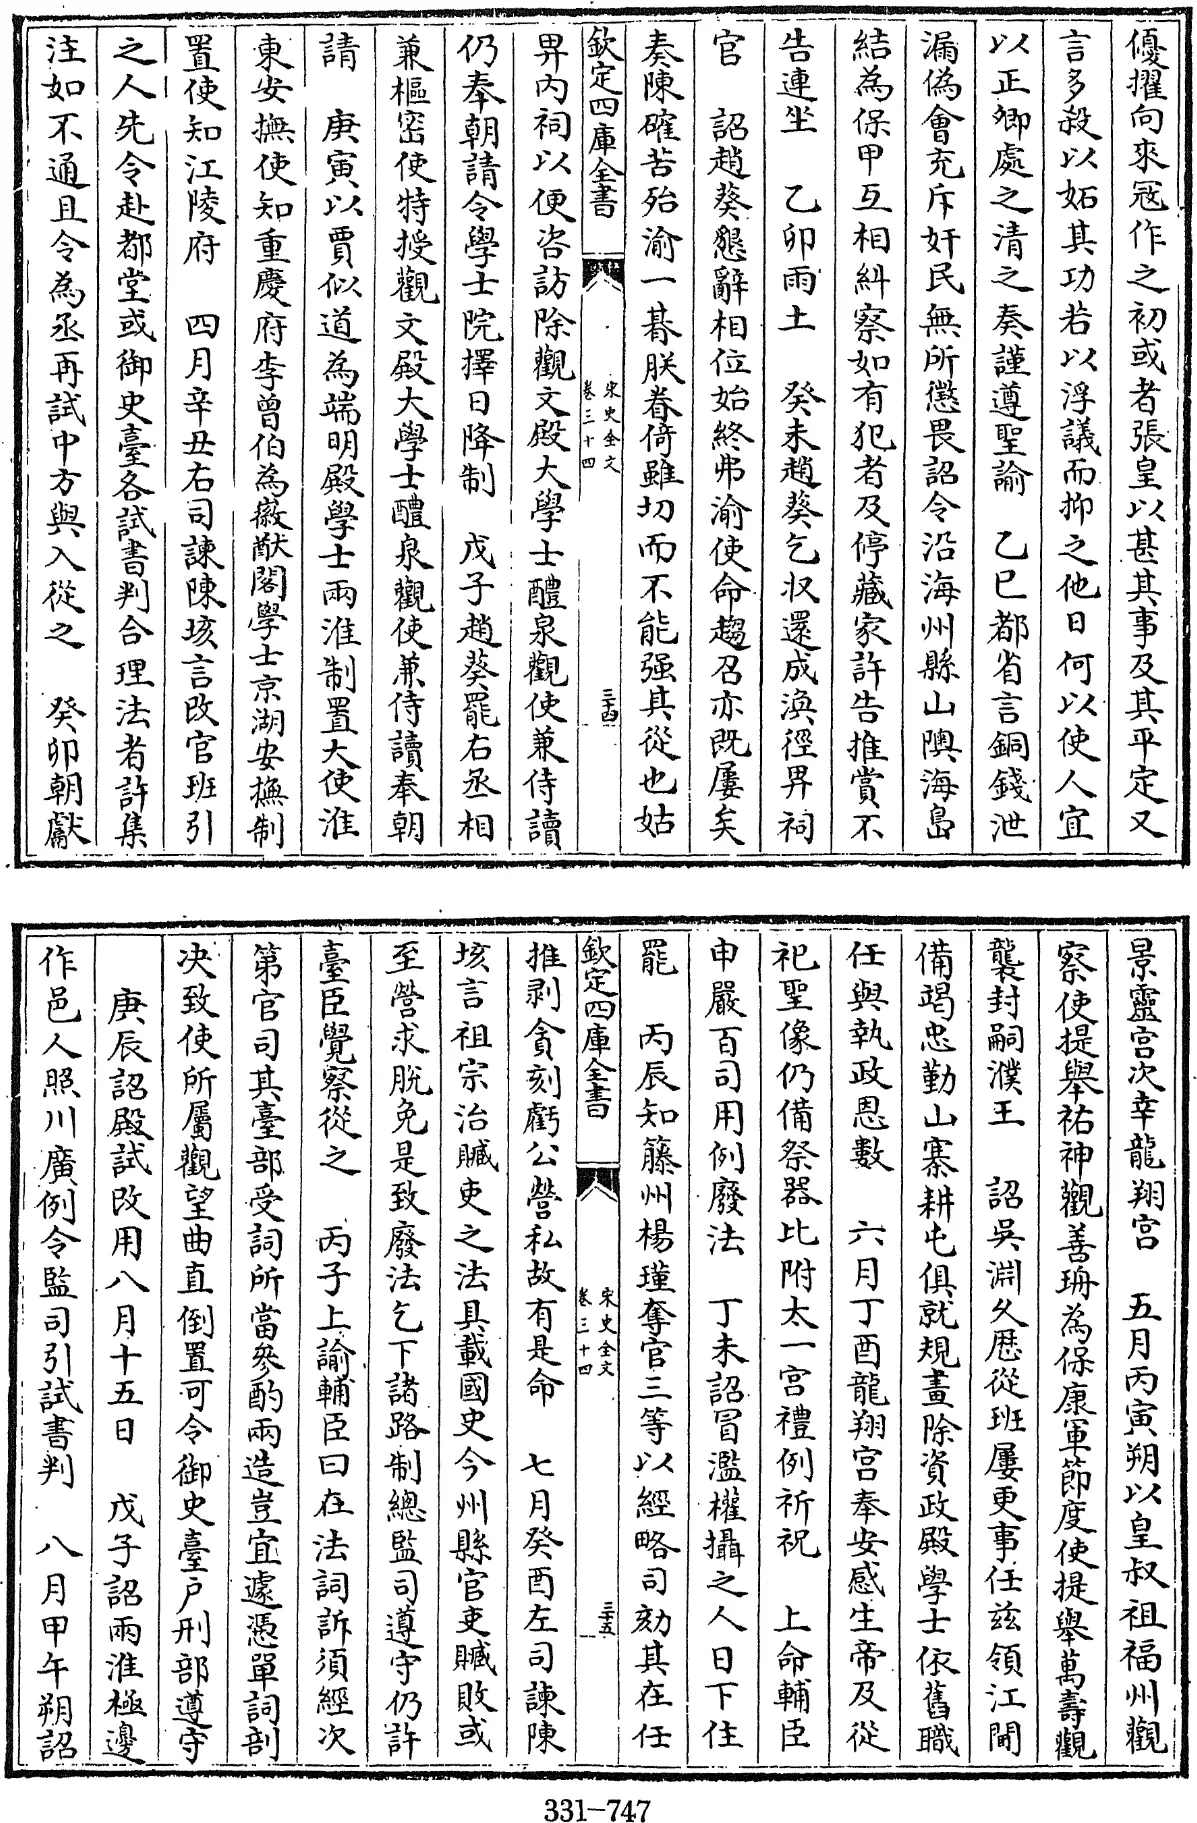 優擢向來冦作之初或者張皇以甚其事及其平定又
言多殺以妬其功若以浮議而抑之他日何以使人宜
以正卿處之清之奏謹遵聖諭　乙巳都省言銅錢泄
漏偽會充斥奸民無所懲畏詔令沿海州縣山隩海島
結為保甲互相糾察如有犯者及停藏家許告推賞不
告連坐　乙卯雨土　癸未趙葵乞収還成渙徑畀祠
官　詔趙葵懇辭相位始終弗渝使命趨召亦既屢矣
奏陳確苦殆渝一朞朕眷倚雖切而不能强其從也姑
欽定四庫全書
宋史全文
卷三十四
三十四
畀内祠以便咨訪除觀文殿大學士醴泉觀使兼侍讀
仍奉朝請令學士院擇日降制　戊子趙葵罷右丞相
兼樞密使特授觀文殿大學士醴泉觀使兼侍讀奉朝
請　庚寅以賈似道為端明殿學士兩淮制置大使淮
東安撫使知重慶府李曾伯為徽猷閣學士京湖安撫制
置使知江陵府　四月辛丑右司諫陳垓言改官班引
之人先令赴都堂或御史臺各試書判合理法者許集
注如不通且令為丞再試中方與入從之　癸卯朝獻
景靈宫次幸龍翔宫　五月丙寅朔以皇叔祖福州觀
察使提舉祐神觀善珊為保康軍節度使提舉萬壽觀
襲封嗣濮王　詔吳淵久歴從班屢更事任兹領江閫
備竭忠勤山寨耕屯俱就規畫除資政殿學士依舊職
任與執政恩數　六月丁酉龍翔宫奉安感生帝及從
祀聖像仍備祭器比附太一宫禮例祈祝　上命輔臣
申嚴百司用例廢法　丁未詔冒濫權攝之人日下住
罷　丙辰知籐州楊瑾奪官三等以經略司劾其在任
欽定四庫全書
宋史全文
卷三十四
三十五
推剥貪刻虧公營私故有是命　七月癸酉左司諫陳
垓言祖宗治贓吏之法具載國史今州縣官吏贓敗或
至營求脱免是致廢法乞下諸路制總監司遵守仍許
臺臣覺察從之　丙子上諭輔臣曰在法詞訴須經次
第官司其臺部受詞所當參酌兩造豈宜遽憑單詞剖
决致使所屬觀望曲直倒置可令御史臺户刑部遵守
庚辰詔殿試改用八月十五日　戊子詔兩淮極邊
作邑人照川廣例令監司引試書判　八月甲午朔詔
331-747